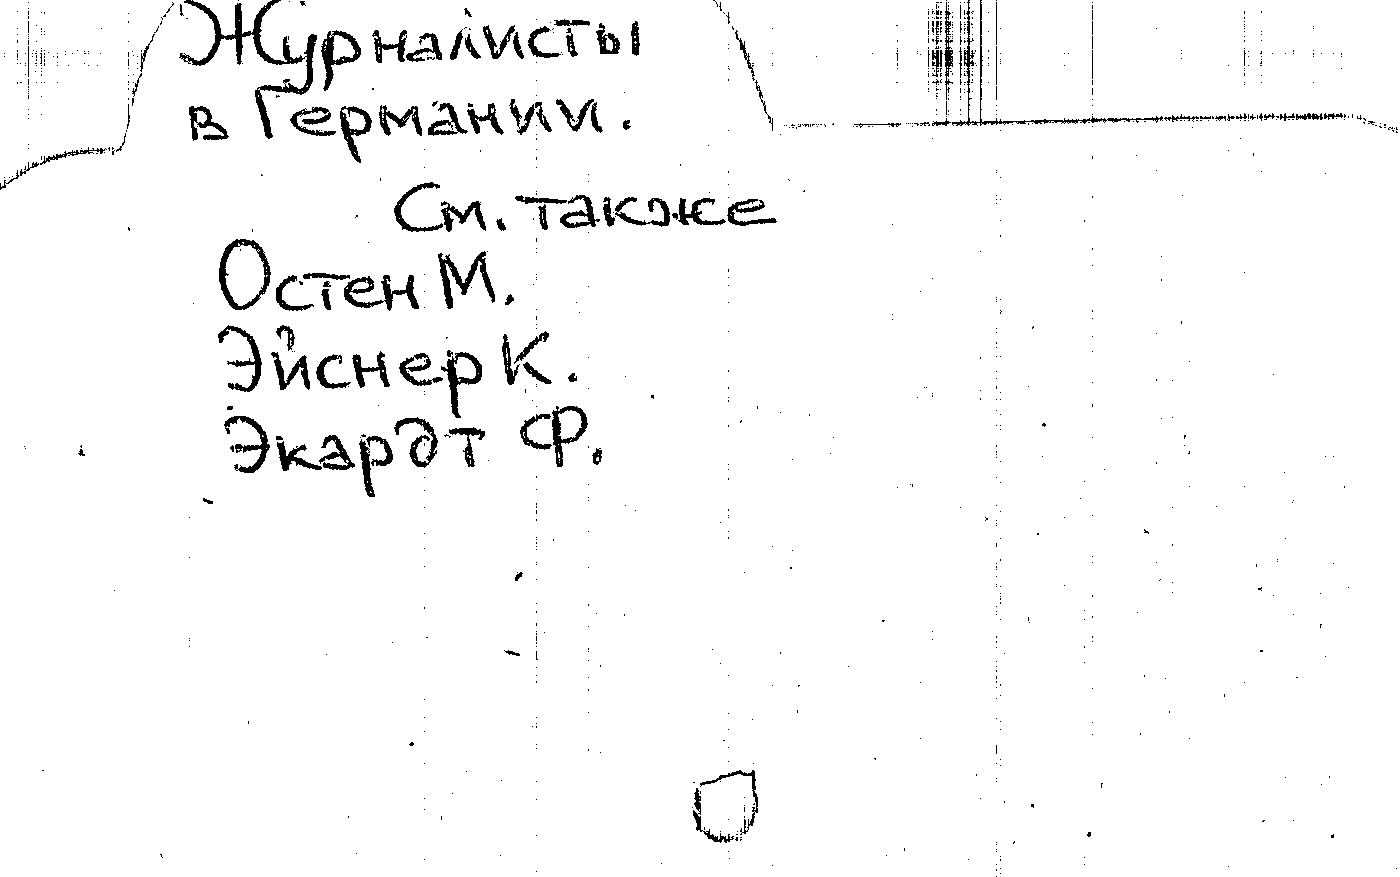 Журналисты
в Германии.
См. также
Остен М.
Эйснер К.
Экардт Ф.